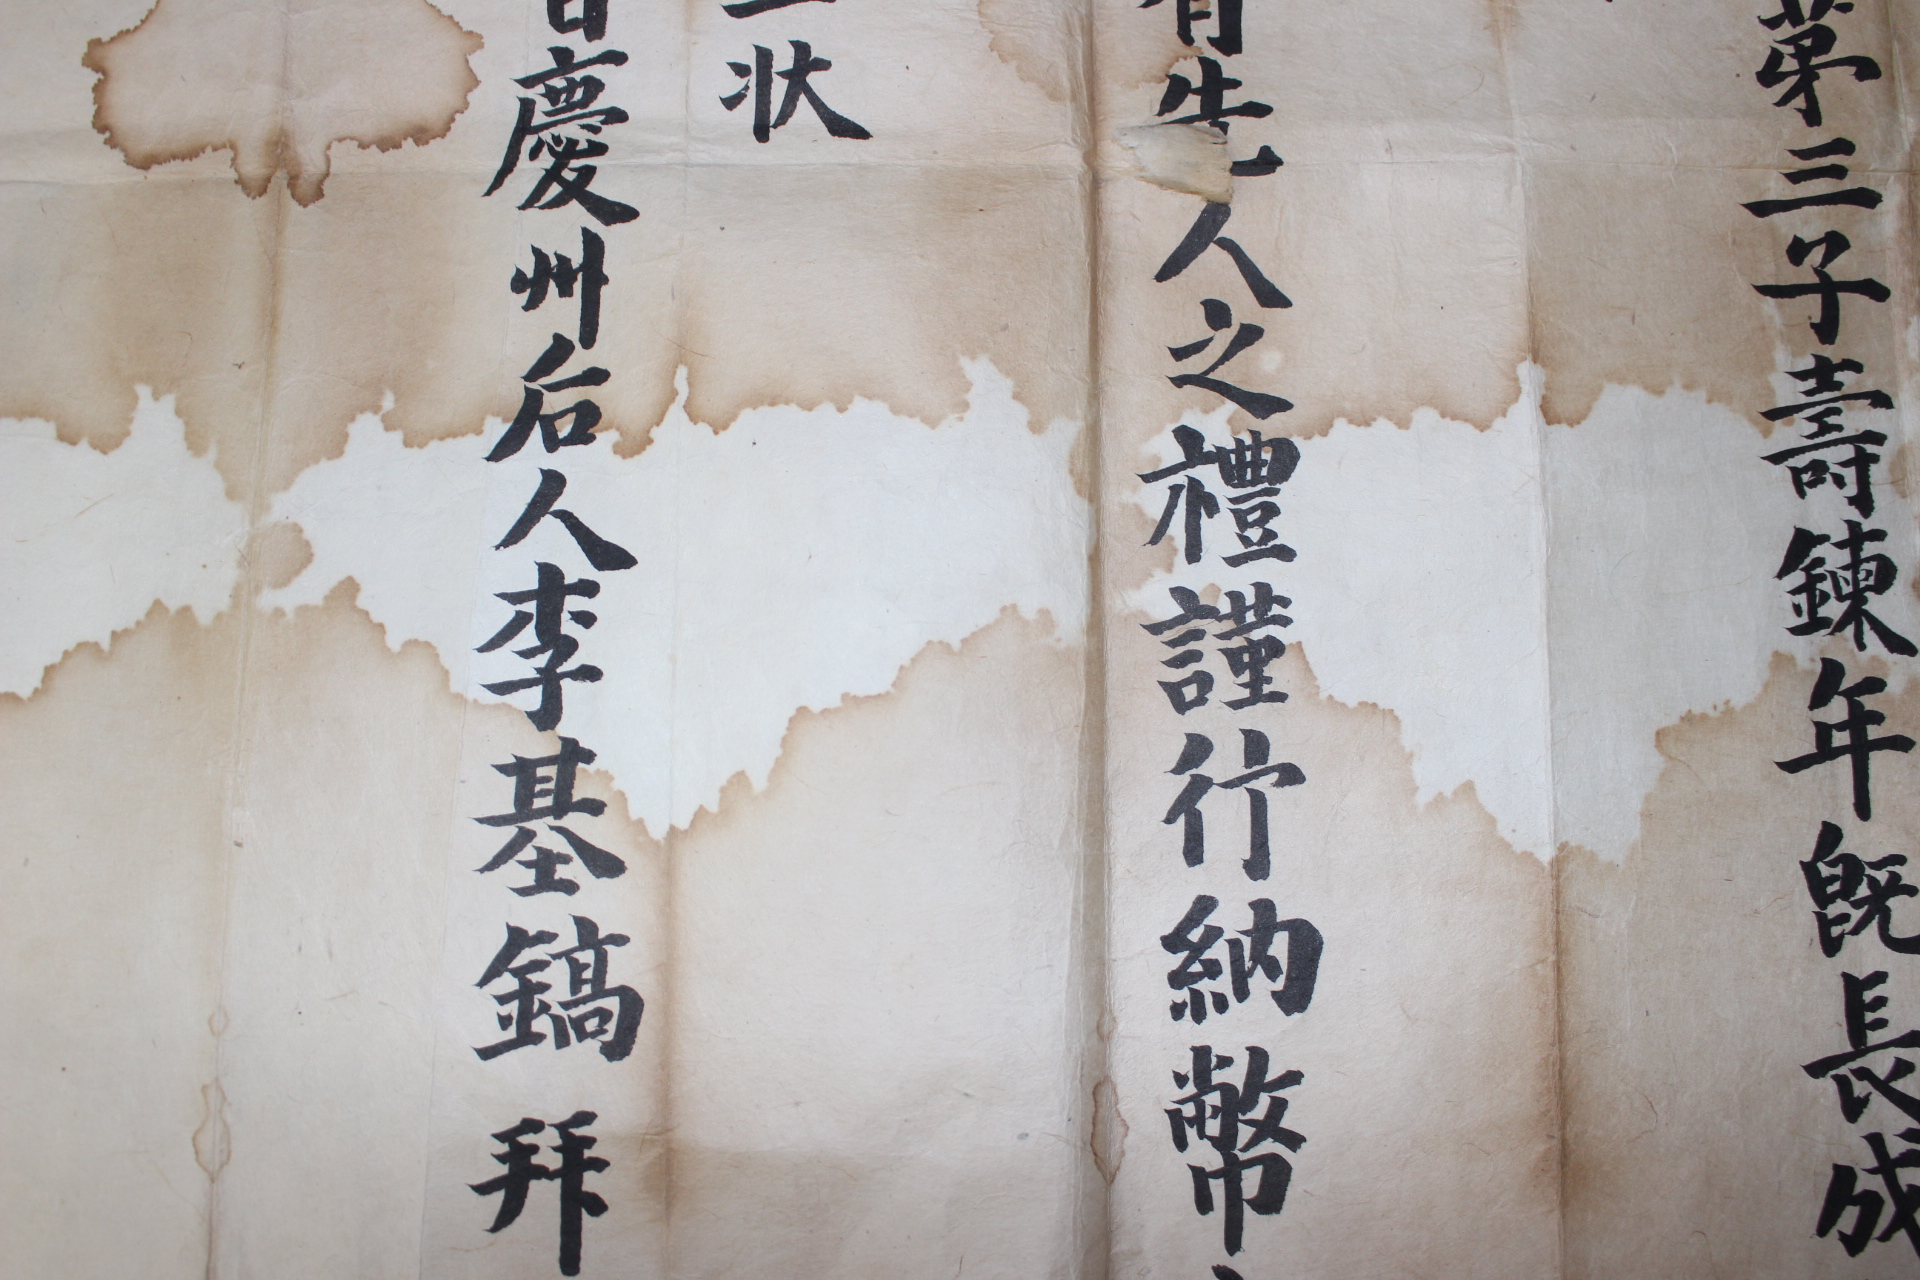 第三子壽鍊年旣長成
有先人之禮謹行納幣
狀
日慶州后人李基鎬 拜